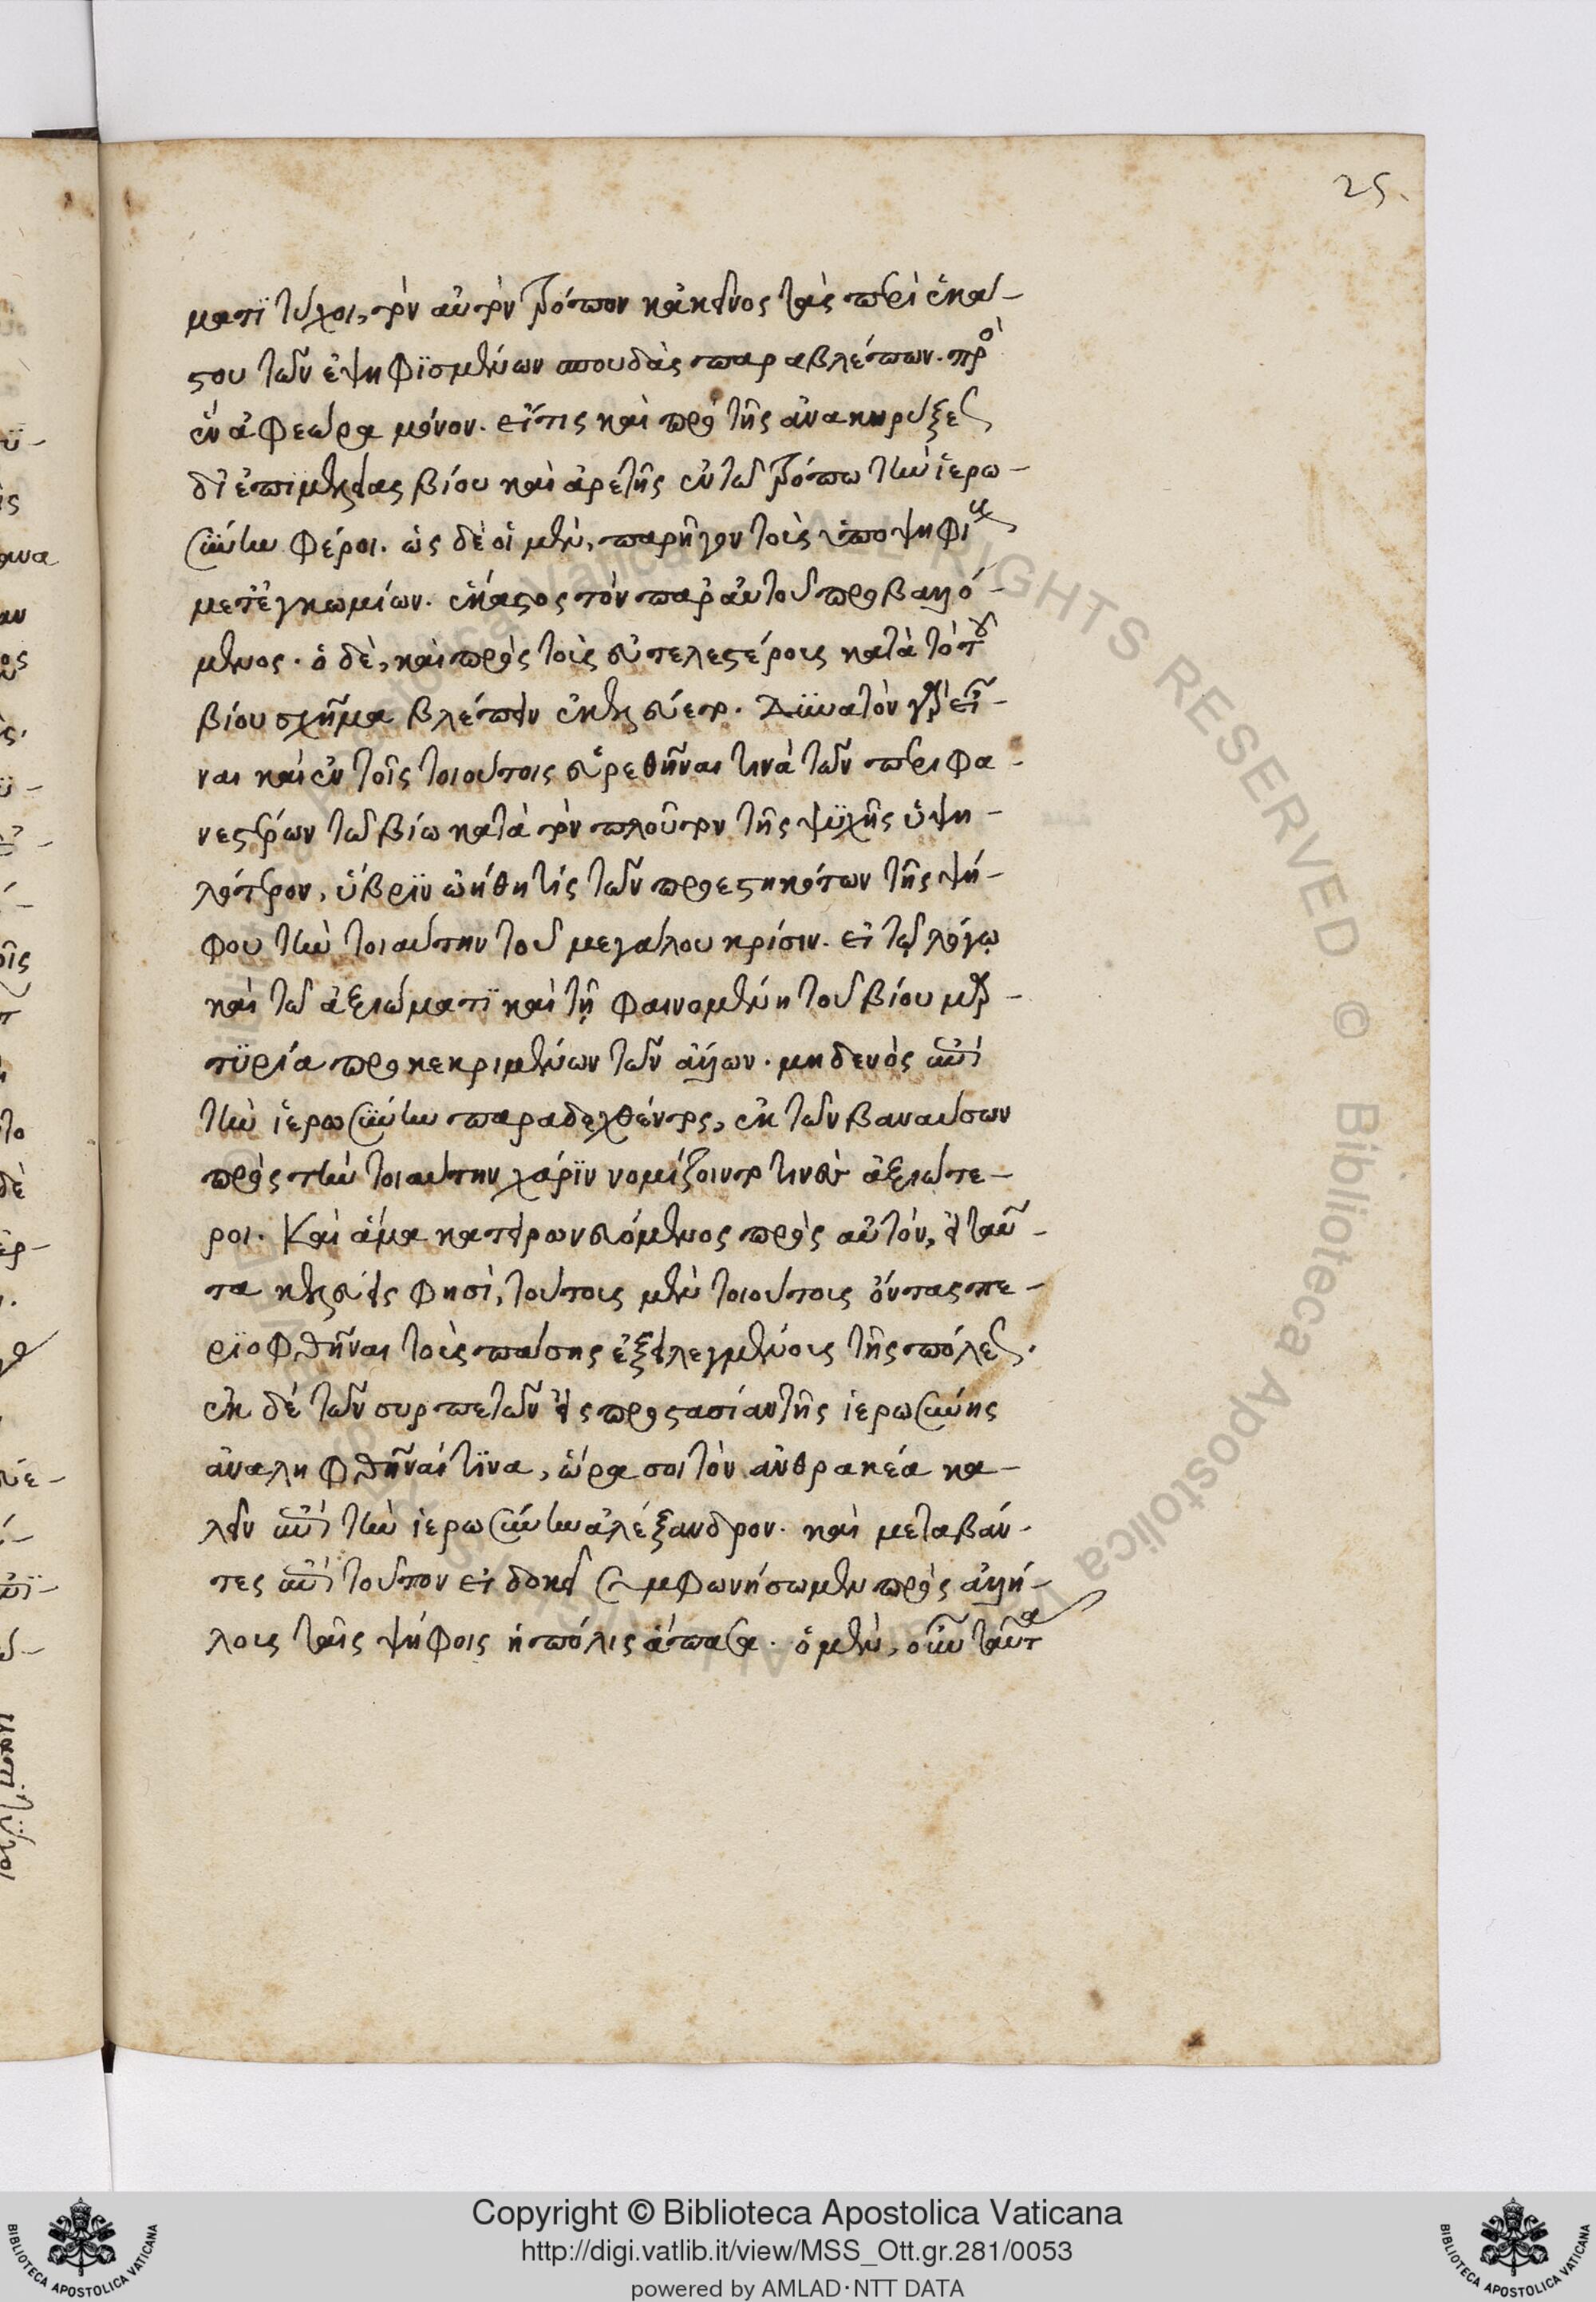 25.
ματι τύχοι, τὸν αὐτὸν τρόπον κἀκεῖνος τὰς περὶ ἑκά-
στου τῶν ἐψηφισμένων σπουδὰς παραβλέπων. πρὸ
ἓν ἀφεώρα μόνον. εἴ τις καὶ πρὸ τῆς ἀνακηρύξεως
δι' ἐπιμελείας βίου καὶ ἀρετῆς ἐν τῶ τρόπω τὴν ἱερω-
σύνην φέροι. ὡς δὲ οἱ μὲν, παρῆγον τοὺς ὑποψηφίους
μετ' ἐγκωμίων. ἕκαστος τὸν παρ' αὐτοῦ προβαλλό-
μενος. ὁ δὲ, καὶ πρὸς τοὺς εὐτελεστέρους κατὰ τὸ τοῦ
βίου σχῆμα βλέπειν ἐκελεύετο. Δυνατὸν γὰρ εἶ-
ναι καὶ ἐν τοῖς τοιούτοις εὑρεθῆναι τινὰ τῶν περιφα-
νεστέρων τῶ βίω κατὰ τὸν πλοῦτον τῆς ψυχῆς ὑψη-
λότερον, ὕβριν ὠήθη τίς τῶν προεστηκότων τῆς ψή-
φου τὴν τοιαύτην τοῦ μεγάλου κρίσιν. εἰ τῷ λόγῳ
καὶ τῶ ἀξιώματι καὶ τῇ φαινομένη τοῦ βίου μαρ-
τυρία προκεκριμένων τῶν ἄλλων. μηδενὸς ἐπὶ
τὴν ἱερωσύνην παραδεχθέντος, ἐκ τῶν βαναύσων
πρὸς τὴν τοιαύτην χάριν νομίζοιντο τινὲς ἀξιώτε-
ροι. Καὶ ἅμα κατειρωνευόμενος πρὸς αὐτὸν, εἰ ταῦ-
τα κελεύεις φησὶ, τούτους μὲν τοιούτους ὄντας πε-
ριοφθῆναι τοὺς πάσης ἐξειλεγμένους τῆς πόλεως.
ἐκ δὲ τῶν συρπετῶν εἰς προστασίαν τῆς ἱερωσύνης
ἀναληφθῆναί τινα, ὥρα σοι τὸν ἀνθρακέα κα-
λεῖν ἐπὶ τὴν ἱερωσύνην ἀλέξανδρον. καὶ μεταβάν-
τες ἐπὶ τοῦτον εἰ δοκεῖ συμφωνήσωμεν πρὸς ἀλλή-
λους ταῖς ψήφοις ἡ πόλις ἅπασα. ὁ μὲν, οὖν ταῦτα
Copyright © Biblioteca Apostolica Vaticana
http://digi.vatlib.it/view/MSS_Ott.gr.281/0053
powered by AMLAD·NTT DATA